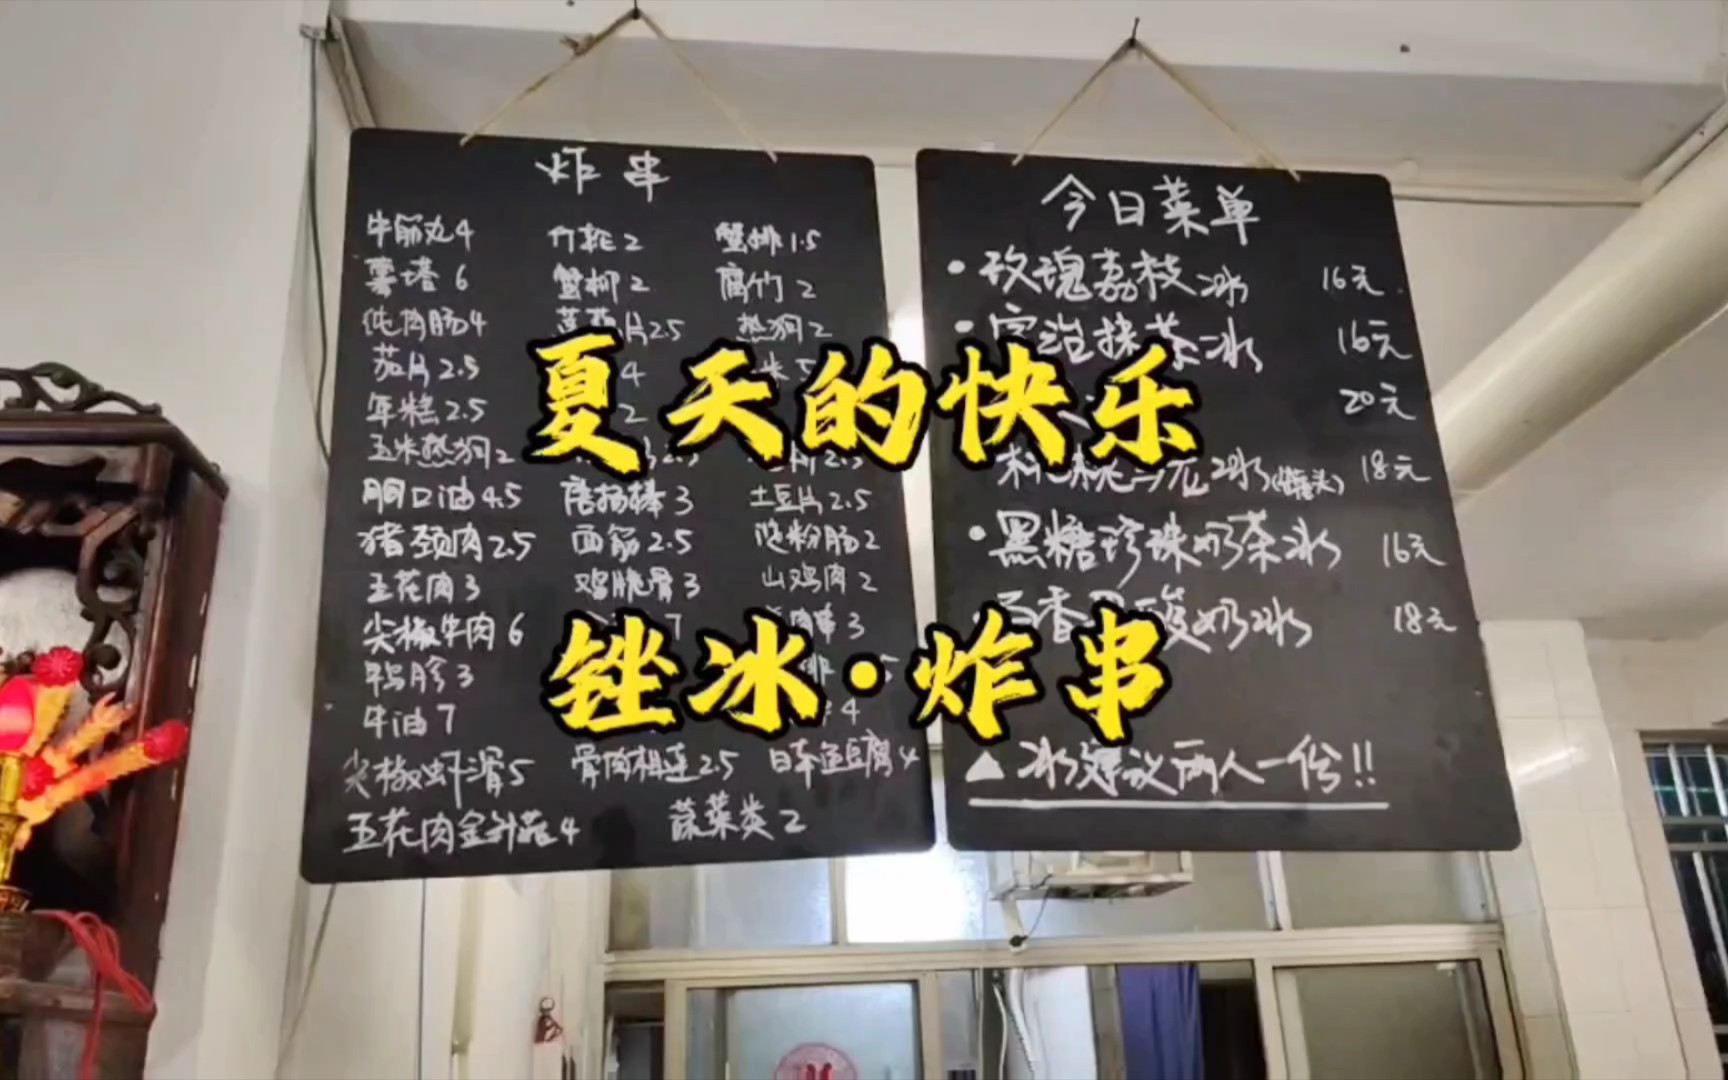 炸串
牛筋丸4 竹轮2 蟹排1.5
薯塔6 蟹柳2 腐竹2
纯肉肠4 片2.5 热狗2
茄片2.5 4
年糕2.5 2
玉米热狗2
胴口油4.5 唐扬棒3 土豆片2.5
猪颈肉2.5 面筋2.5 粉肠2
五花肉3 鸡脆骨3 山鸡肉2
尖椒牛肉6 7 3
鸭胗3
牛油7 4
尖椒虾滑5 骨肉相连2.5 日本鱼豆腐4
五花肉金针菇4 蔬菜类2
今日菜单
·玫瑰荔枝冰 16元
·宇治抹茶冰 16元
20元
冰(罐头) 18元
·黑糖珍珠奶茶冰 16元
百香果酸奶冰 18元
▲冰建议两人一份!!
夏天的快乐
锉冰·炸串